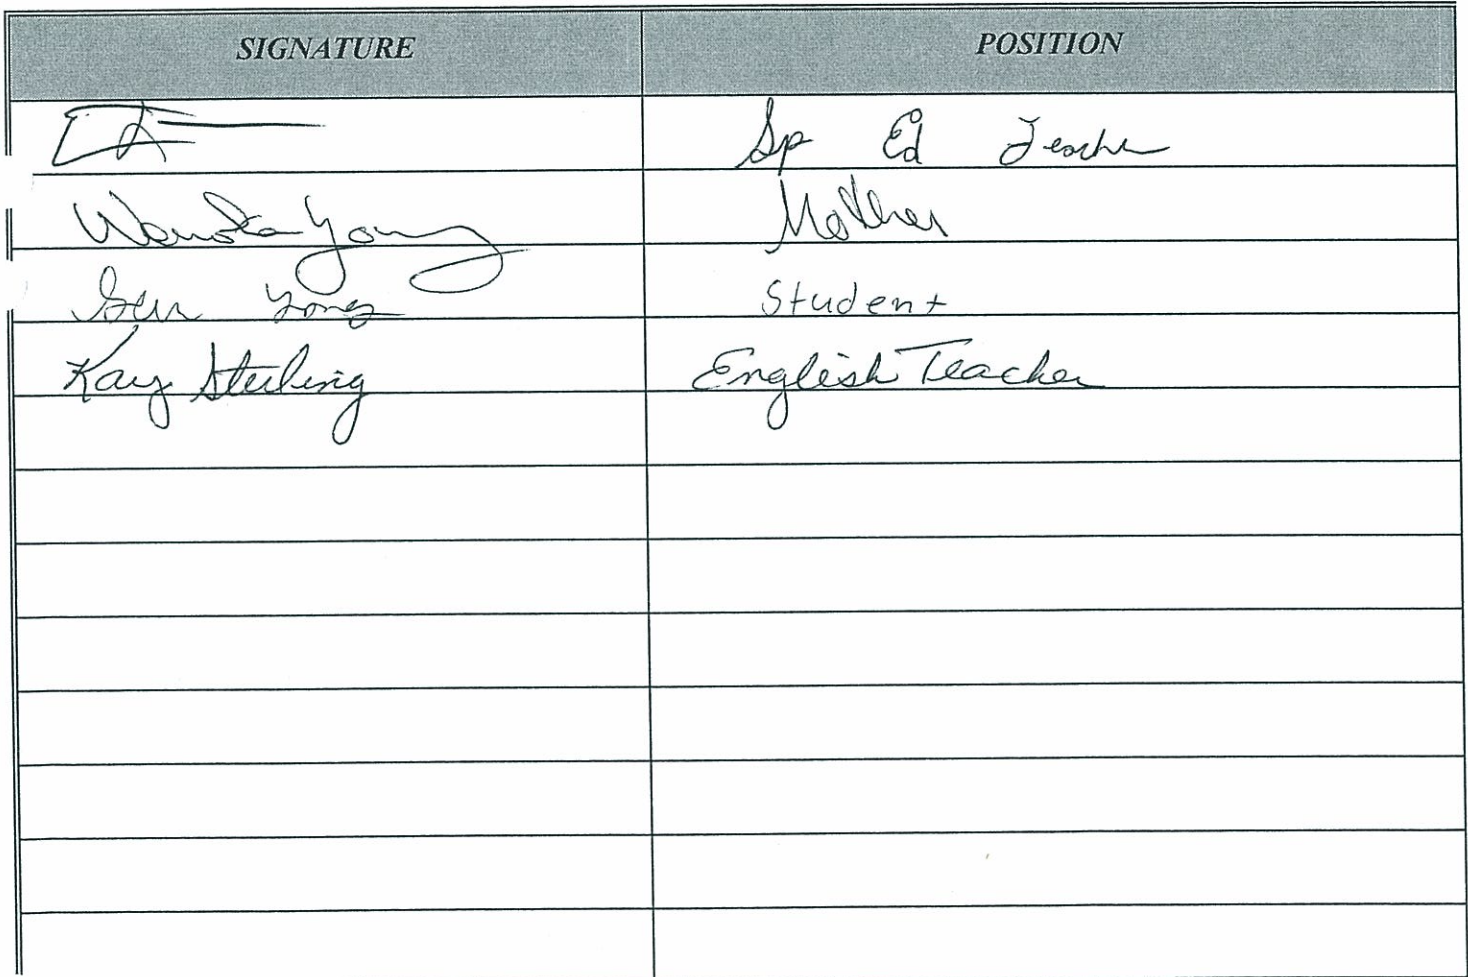 SIGNATURE POSITION
Sp Ed Teacher
Wanda Young Mother
Young Student
Kay Sterling English Teacher